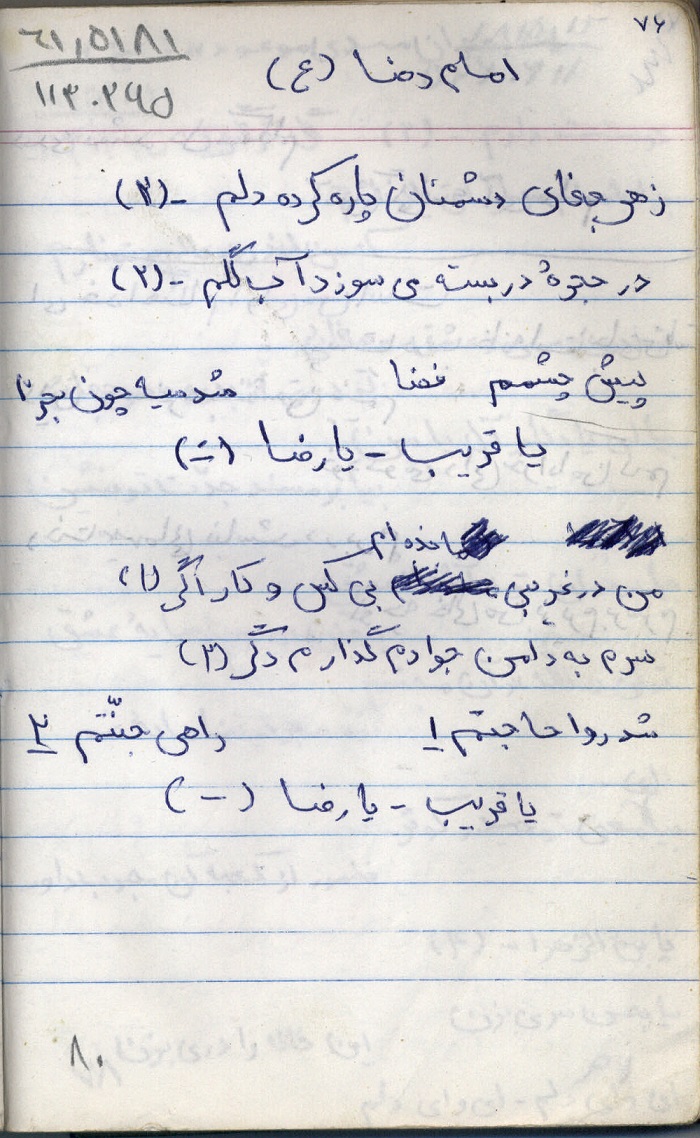 ۷۶
امام رضا (ع)
زهر جفای دشمنان پاره کرده دلم - (۲)
در حجرهٔ در بسته می سوزد آب گلم - (۲)
پیش چشمم فضا شد سیه چون
یا قریب - یا رضا (-)
مانده ام
من در غریبی بی کس و کار اگر (۱)
سرم به دامن جوادم گذارم دگر (۲)
شد روا حاجتم ۱ راهی جنّتم ۲
یا قریب - یا رضا (-)
۸۰